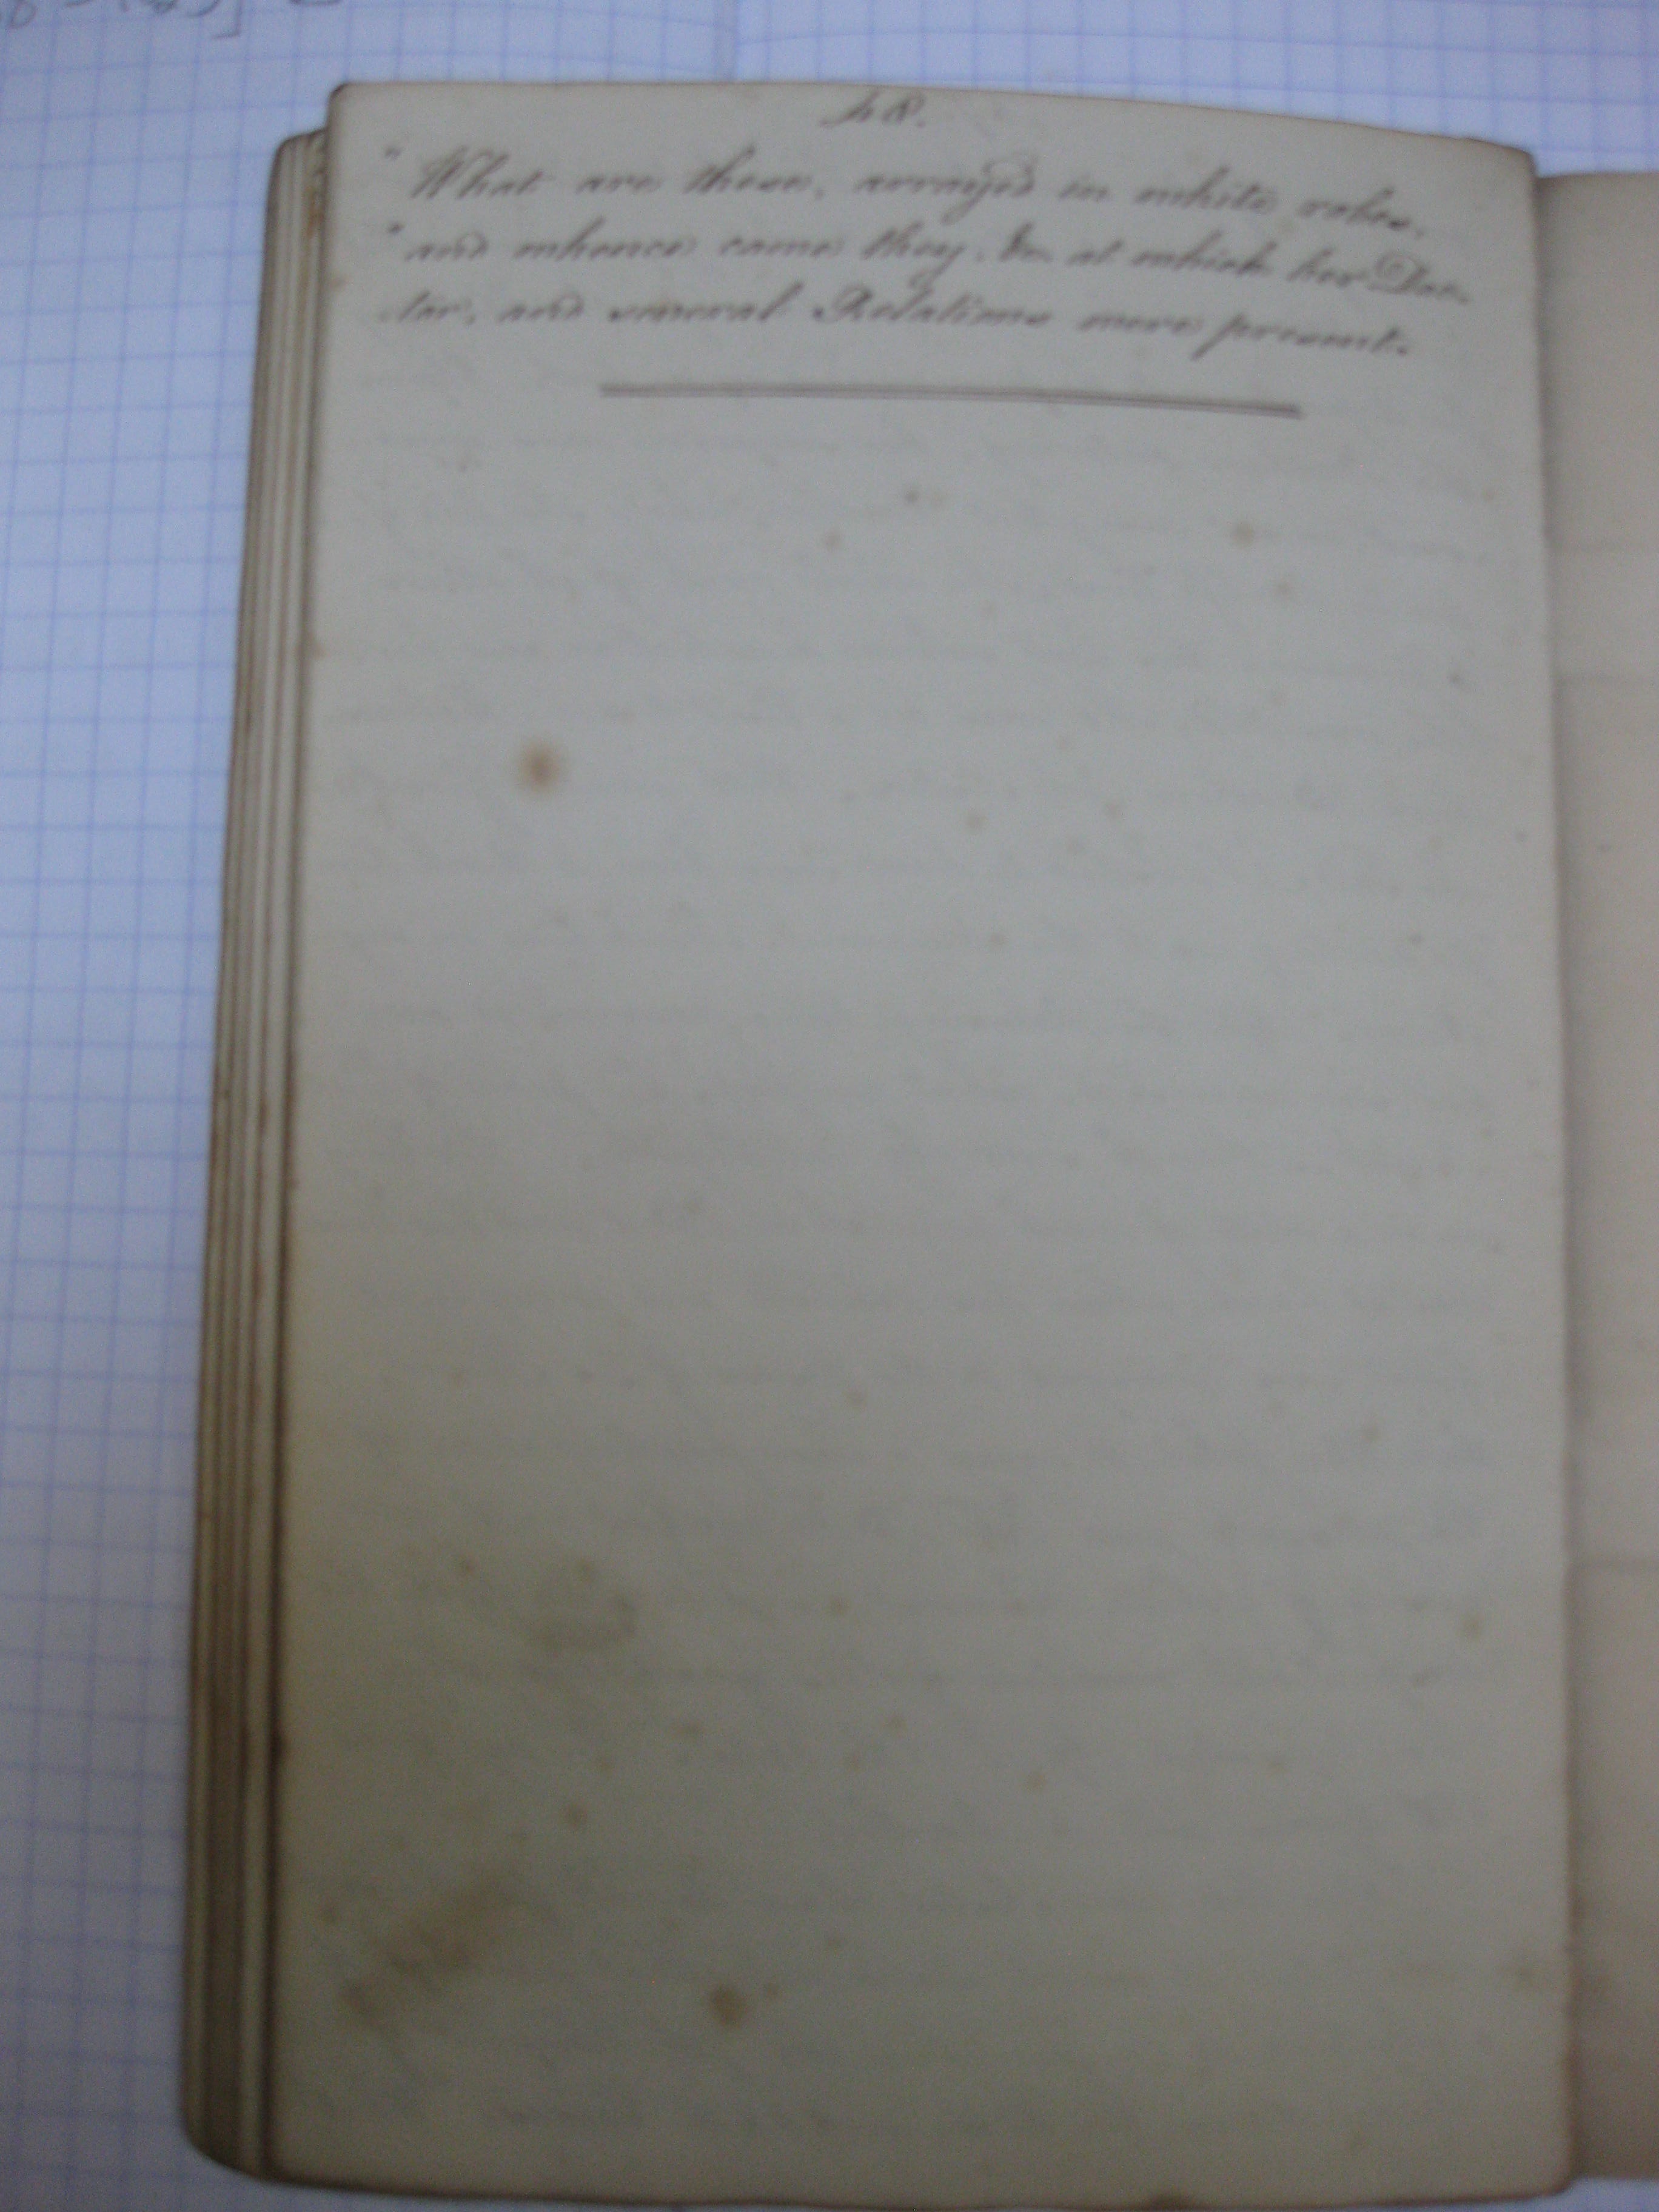 48.
"What are these, arrayed in white robes,
"and whence came they. &c. at which her Doc-
tor, and several Relations were present.